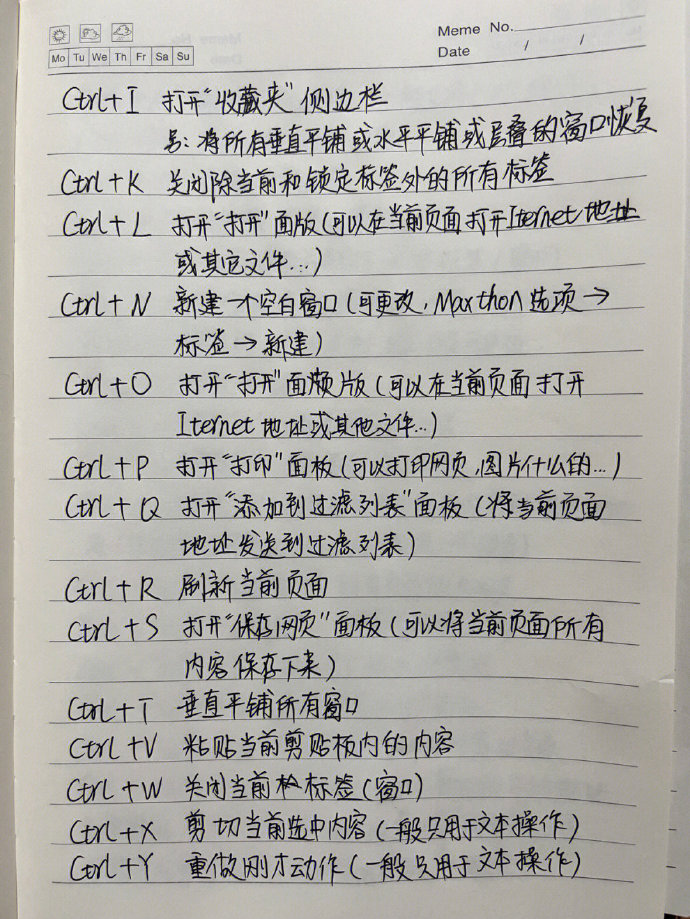 Meme No.
Date / /
Mo Tu We Th Fr Sa Su
Ctrl+I 打开"收藏夹"侧边栏
另：将所有垂直平铺或水平平铺或层叠的窗口恢复
Ctrl+K 关闭除当前和锁定标签外的所有标签
Ctrl+L 打开"打开"面版(可以在当前页面打开Iternet地址
或其它文件...)
Ctrl+N 新建一个空白窗口(可更改,Maxthon选项→
标签→新建)
Ctrl+O 打开"打开"面版(可以在当前页面打开
Iternet地址或其他文件...)
Ctrl+P 打开"打印"面板(可以打印网页,图片什么的...)
Ctrl+Q 打开"添加到过滤列表"面板(将当前页面
地址发送到过滤列表)
Ctrl+R 刷新当前页面
Ctrl+S 打开"保存网页"面板(可以将当前页面所有
内容保存下来)
Ctrl+T 垂直平铺所有窗口
Ctrl+V 粘贴当前剪贴板内的内容
Ctrl+W 关闭当前标签(窗口)
Ctrl+X 剪切当前选中内容(一般只用于文本操作)
Ctrl+Y 重做刚才动作(一般只用于文本操作)